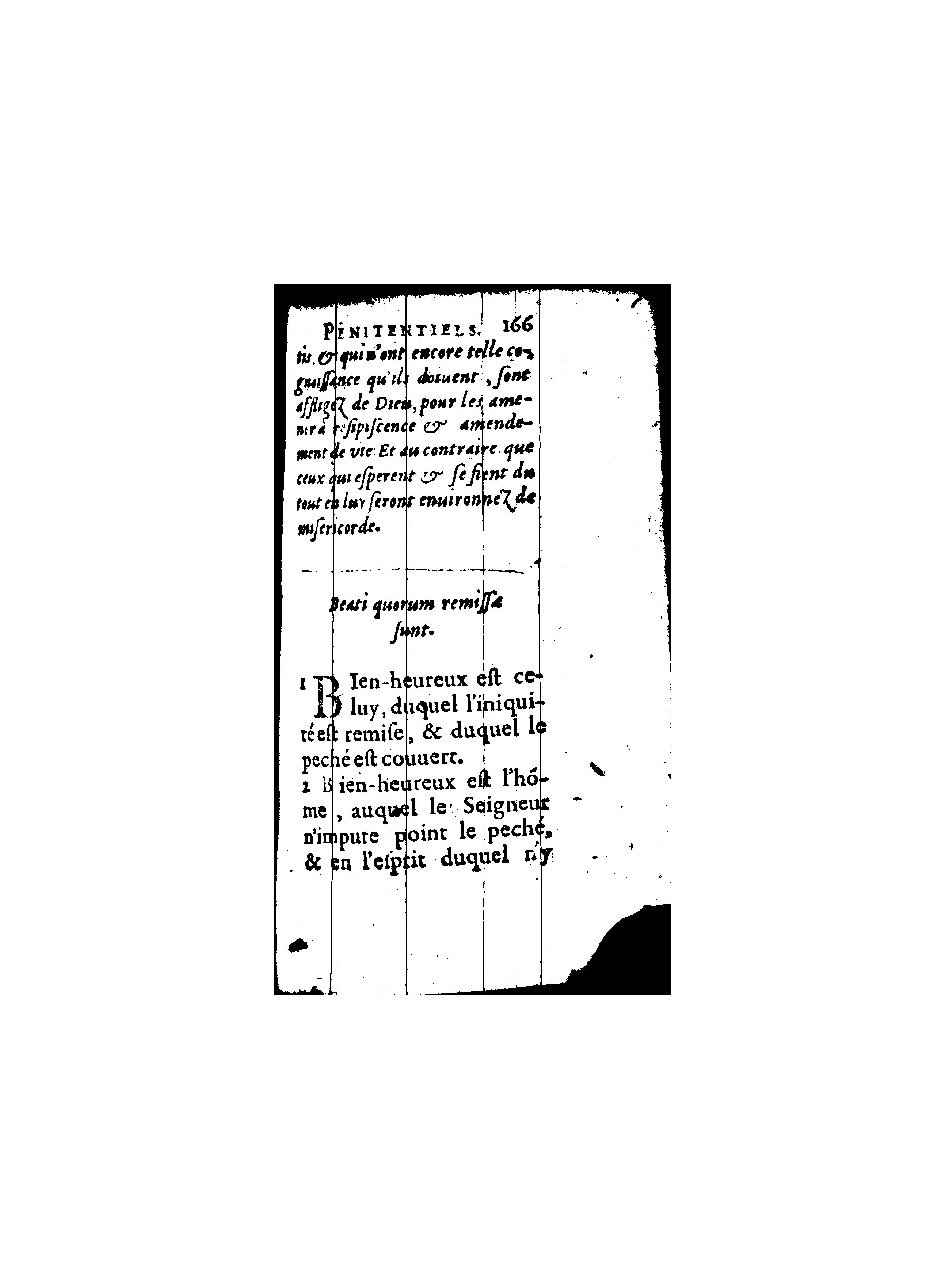 PENITENTIELS. 166
tis, & qui n'ont encore telle co-
gnoissance qu'ils doiuent, sont
affligez de Dieu, pour les ame-
ner à resipiscence & amende-
ment de vie Et au contraire que
ceux qui esperent & se fient du
tout en luy seront enuironnez de
misericorde.
Beati quorum remissæ
sunt.
1 BIen-heureux est ce-
luy, duquel l'iniqui-
té est remise, & duquel le
peché est couuert.
2 Bien-heureux est l'hõ-
me, auquel le Seigneur
n'impute point le peché,
& en l'esprit duquel n'y